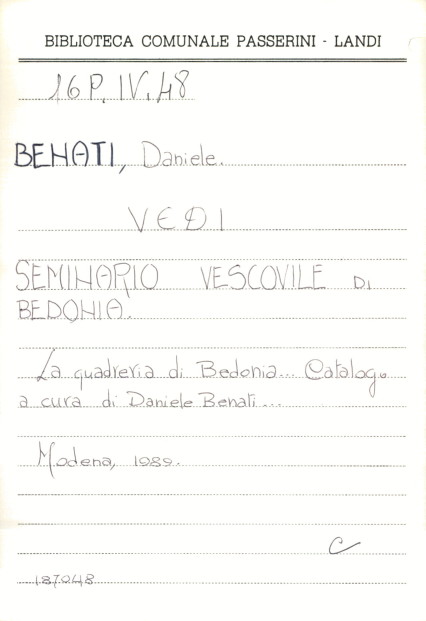 BIBLIOTECA COMUNALE PASSERINI - LANDI
16 P. IV. 48
BENATI, Daniele.
VEDI
SEMINARIO VESCOVILE DI
BEDONIA.
La quadreria di Bedonia... Catalogo
a cura di Daniele Benati...
Modena, 1989.
C
187048